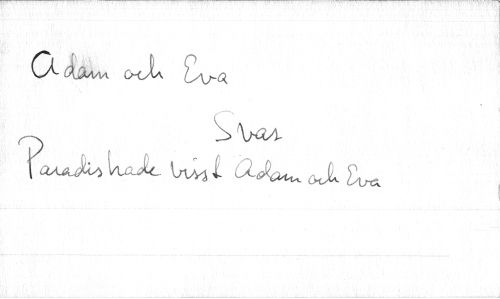 Adam och Eva
Svar
Paradis hade visst Adam och Eva